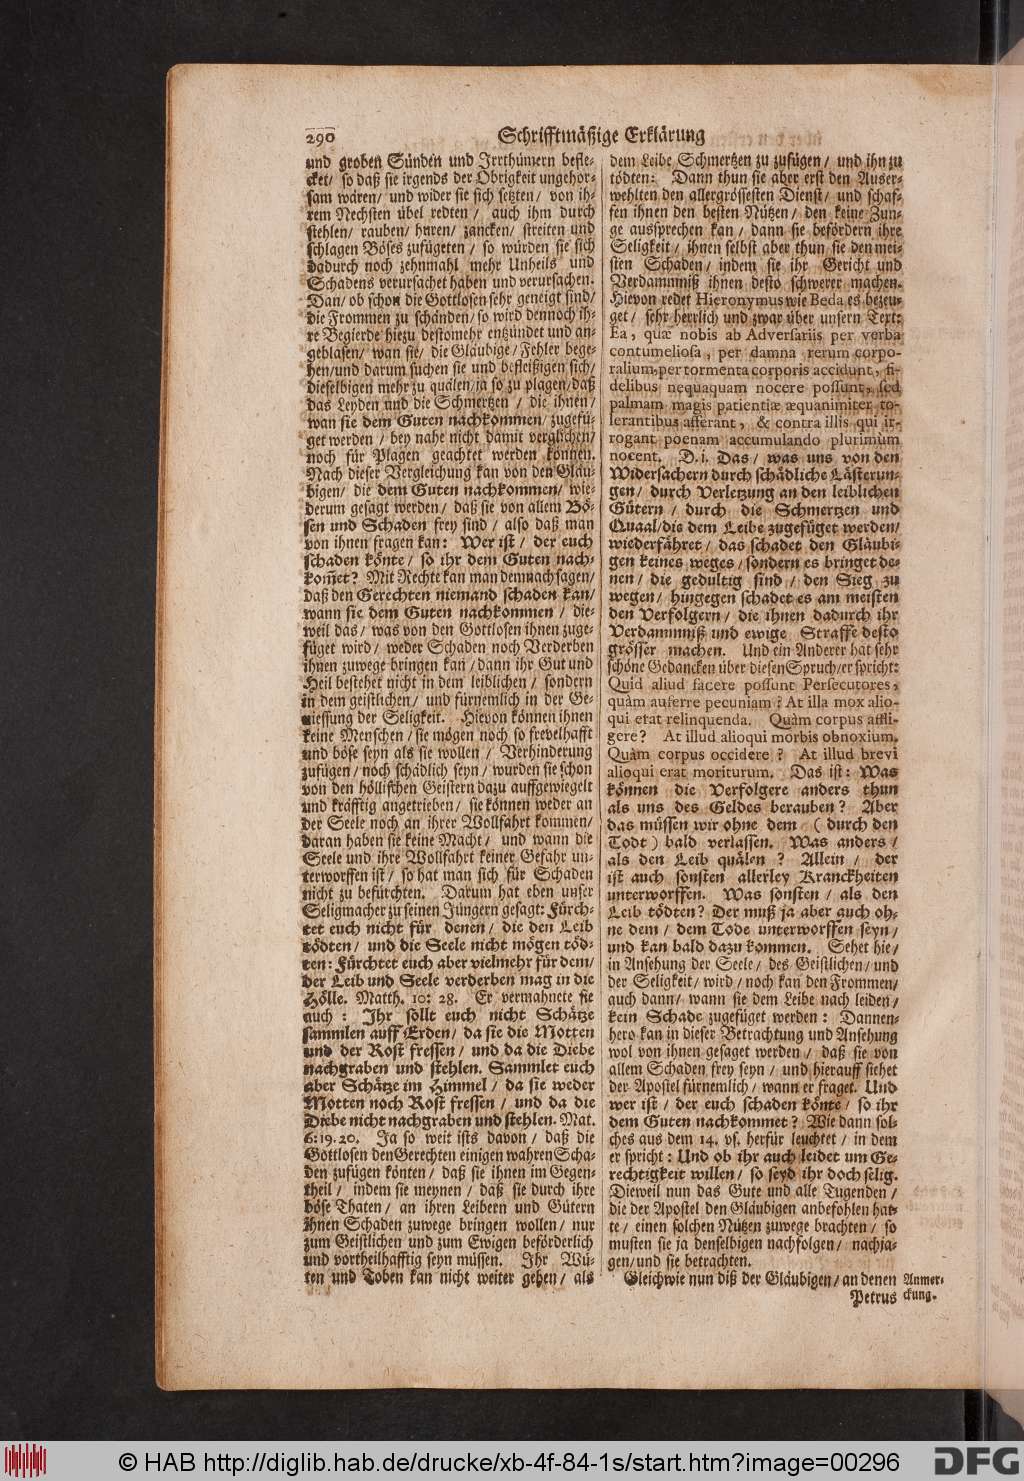 290
Schrifftmäßige Erklärung
und groben Sünden und Irrthümern befle-
cket/ so daß sie irgends der Obrigkeit ungehor-
sam wären/ und wider sie sich setzten/ von ih-
rem Nechsten übel redten/ auch ihm durch
stehlen/ rauben/ huren/ zancken/ streiten und
schlagen Böses zufügeten/ so würden sie sich
dadurch noch zehnmahl mehr Unheils und
Schadens verursachet haben und verursachen.
Dan/ ob schon die Gottlosen sehr geneigt sind/
die Frommen zu schänden/ so wird dennoch ih-
re Begierde hiezu destomehr entzündet und an-
geblasen/ wan sie/ die Gläubige/ Fehler bege-
hen/ und darum suchen sie und befleißigen sich/
dieselbigen mehr zu quälen/ ja so zu plagen/ daß
das Leyden und die Schmertzen/ die ihnen/
wan sie dem Guten nachkommen/ zugefü-
get werden/ bey nahe nicht damit verglichen/
noch für Plagen geachtet werden können.
Nach dieser Vergleichung kan von den Gläu-
bigen/ die dem Guten nachkommen/ wie-
derum gesagt werden/ daß sie von allem Bö-
sen und Schaden frey sind/ also daß man
von ihnen fragen kan: Wer ist/ der euch
schaden könte/ so ihr dem Guten nach-
kom̃et? Mit Rechte kan man demnach sagen/
daß den Gerechten niemand schaden kan/
wann sie dem Guten nachkommen/ die-
weil das/ was von den Gottlosen ihnen zuge-
füget wird/ weder Schaden noch Verderben
ihnen zuwege bringen kan/ dann ihr Gut und
Heil bestehet nicht in dem leiblichen/ sondern
in dem geistlichen/ und fürnemlich in der Ge-
niessung der Seligkeit. Hievon können ihnen
keine Menschen/ sie mögen noch so frevelhafft
und böse seyn als sie wollen/ Verhinderung
zufügen/ noch schädlich seyn/ wurden sie schon
von den höllischen Geistern dazu auffgewiegelt
und kräfftig angetrieben/ sie können weder an
der Seele noch an ihrer Wollfahrt kommen/
daran haben sie keine Macht/ und wann die
Seele und ihre Wollfahrt keiner Gefahr un-
terworffen ist/ so hat man sich für Schaden
nicht zu befürchten. Darum hat eben unser
Seligmacher zu seinen Jüngern gesagt: Fürch-
tet euch nicht für denen/ die den Leib
tödten/ und die Seele nicht mögen töd-
ten: Fürchtet euch aber vielmehr für dem/
der Leib und Seele verderben mag in die
Hölle. Matth. 10: 28. Er vermahnete sie
auch: Ihr sollt euch nicht Schätze
sammlen auff Erden/ da sie die Motten
und der Rost fressen/ und da die Diebe
nachgraben und stehlen. Sammlet euch
aber Schätze im Himmel/ da sie weder
Motten noch Rost fressen/ und da die
Diebe nicht nachgraben und stehlen. Mat.
6: 19. 20. Ja so weit ists davon/ daß die
Gottlosen den Gerechten einigen wahren Scha-
den zufügen könten/ daß sie ihnen im Gegen-
theil/ indem sie meynen/ daß sie durch ihre
böse Thaten/ an ihren Leibern und Gütern
ihnen Schaden zuwege bringen wollen/ nur
zum Geistlichen und zum Ewigen beförderlich
und vortheilhafftig seyn müssen. Ihr Wü-
ten und Toben kan nicht weiter gehen/ als
dem Leibe Schmertzen zu zufügen/ und ihn zu
tödten: Dann thun sie aber erst den Auser-
wehlten den allergrössesten Dienst/ und schaf-
fen ihnen den besten Nützen/ den keine Zun-
ge aussprechen kan/ dann sie befördern ihre
Seligkeit/ ihnen selbst aber thun sie den mei-
sten Schaden/ indem sie ihr Gericht und
Verdammniß ihnen desto schwerer machen.
Hievon redet Hieronymus wie Beda es bezeu-
get/ sehr herrlich und zwar über unsern Text:
Ea, quæ nobis ab Adversariis per verba
contumeliosa, per damna rerum corpo-
ralium, per tormenta corporis accidunt, fi-
delibus nequaquam nocere possunt, sed
palmam magis patientiæ æquanimiter to-
lerantibus afferant, & contra illis qui ir-
rogant poenam accumulando plurimùm
nocent. D. i. Das/ was uns von den
Widersachern durch schädliche Lästerun-
gen/ durch Verletzung an den leiblichen
Gütern/ durch die Schmertzen und
Quaal/ die dem Leibe zugefüget werden/
wiederfähret/ das schadet den Gläubi-
gen keines weges/ sondern es bringet de-
nen/ die gedultig sind/ den Sieg zu
wegen/ hingegen schadet es am meisten
den Verfolgern/ die ihnen dadurch ihr
Verdammniß und ewige Straffe desto
grösser machen. Und ein Anderer hat sehr
schöne Gedancken über diesen Spruch/ er spricht:
Quid aliud facere possunt Persecutores,
quàm auferre pecuniam? At illa mox alio-
qui erat relinquenda. Quàm corpus affli-
gere? At illud alioqui morbis obnoxium.
Quàm corpus occidere? At illud brevi
alioqui erat moriturum. Das ist: Was
können die Verfolgere anders thun
als uns des Geldes berauben? Aber
das müssen wir ohne dem (durch den
Todt) bald verlassen. Was anders/
als den Leib quälen? Allein/ der
ist auch sonsten allerley Kranckheiten
unterworffen. Was sonsten/ als den
Leib tödten? Der muß ja aber auch oh-
ne dem/ dem Tode unterworffen seyn/
und kan bald dazu kommen. Sehet hie/
in Ansehung der Seele/ des Geistlichen/ und
der Seligkeit/ wird/ noch kan den Frommen/
auch dann/ wann sie dem Leibe nach leiden/
kein Schade zugefüget werden: Dannen-
hero kan in dieser Betrachtung und Ansehung
wol von ihnen gesaget werden/ daß sie von
allem Schaden frey seyn/ und hierauff siehet
der Apostel fürnemlich/ wann er fraget. Und
wer ist/ der euch schaden könte/ so ihr
dem Guten nachkommet? Wie dann sol-
ches aus dem 14. vs. herfür leuchtet/ in dem
er spricht: Und ob ihr auch leidet um Ge-
rechtigkeit willen/ so seyd ihr doch selig.
Dieweil nun das Gute und alle Tugenden/
die der Apostel den Gläubigen anbefohlen hat-
te/ einen solchen Nützen zuwege brachten/ so
musten sie ja denselbigen nachfolgen/ nachja-
gen/ und sie betrachten.
Gleichwie nun diß der Gläubigen/ an denen
Petrus
Anmer-
ckung.
© HAB http://diglib.hab.de/drucke/xb-4f-84-1s/start.htm?image=00296
DFG